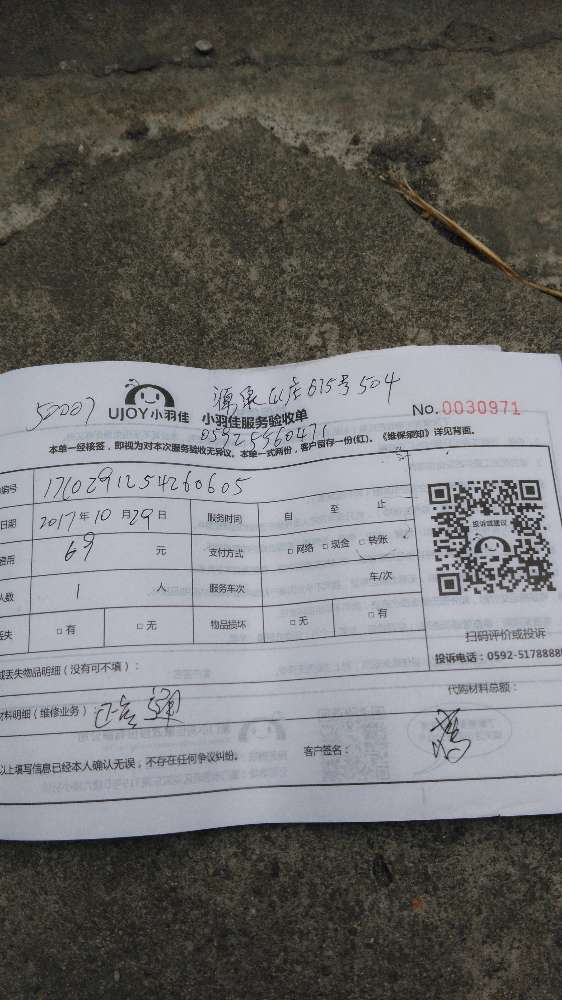 50007
源泉山庄635号504
UJOY小羽佳 小羽佳服务验收单
No.0030971
05925560471
本单一经核签，即视为对本次服务验收无异议。本单一式两份，客户留存一份(红)。《维保须知》详见背面。
编号 1710291254260605
日期 2017年10月29日 服务时间 自 至 止
费用 69 元 支付方式 □网络 □现金 □转账
人数 1 人 服务车次 车/次
丢失 □有 □无 物品损坏 □无 □有
投诉或建议
扫码评价或投诉
投诉电话：0592-5178888
或丢失物品明细（没有可不填）：
材料明细（维修业务）：
代购材料总额：
以上填写信息已经本人确认无误，不存在任何争议纠纷。 客户签名：